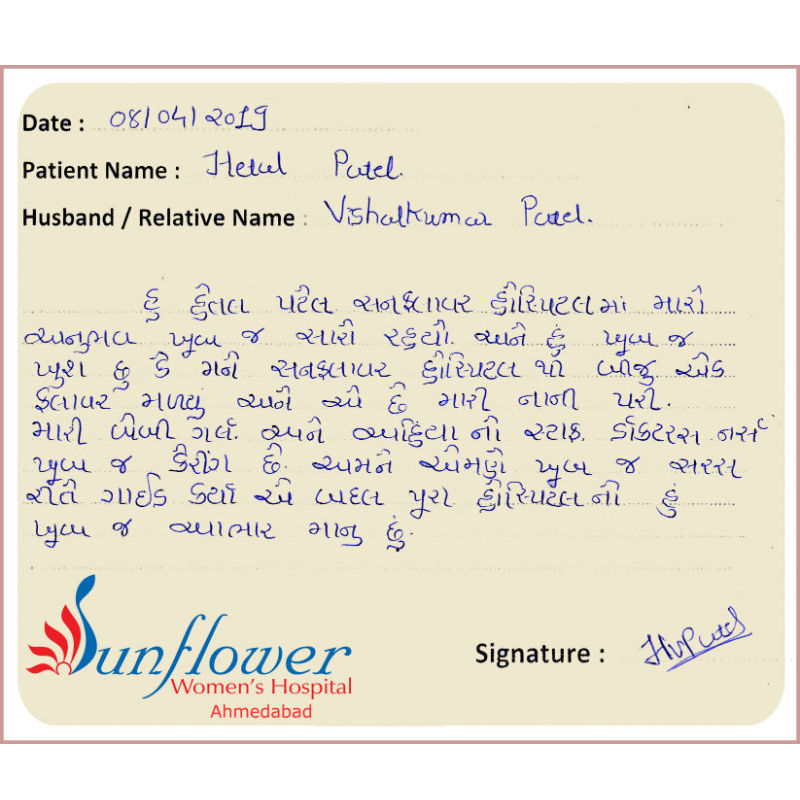 Date : 08/04/2019
Patient Name : Hetal Patel.
Husband / Relative Name : Vishalkumar Patel.
હું હેતલ પટેલ સનફ્લાવર હોસ્પિટલમાં મારો
અનુભવ ખૂબ જ સારો રહ્યો. અને હું ખૂબ જ
ખુશ છું કે મને સનફ્લાવર હોસ્પિટલ થી બીજુ એક
ફ્લાવર મળ્યું અને એ છે મારી નાની પરી.
મારી બેબી ગર્લ. અને અહિંયા નો સ્ટાફ. ડોકટરસ નર્સ
ખૂબ જ કેરીંગ છે. અમને એમણે ખૂબ જ સરસ
રીતે ગાઈડ કર્યા એ બદલ પૂરા હોસ્પિટલ નો હું
ખૂબ જ આભાર માનુ છું.
Sunflower
Women's Hospital
Ahmedabad
Signature : HvPatel